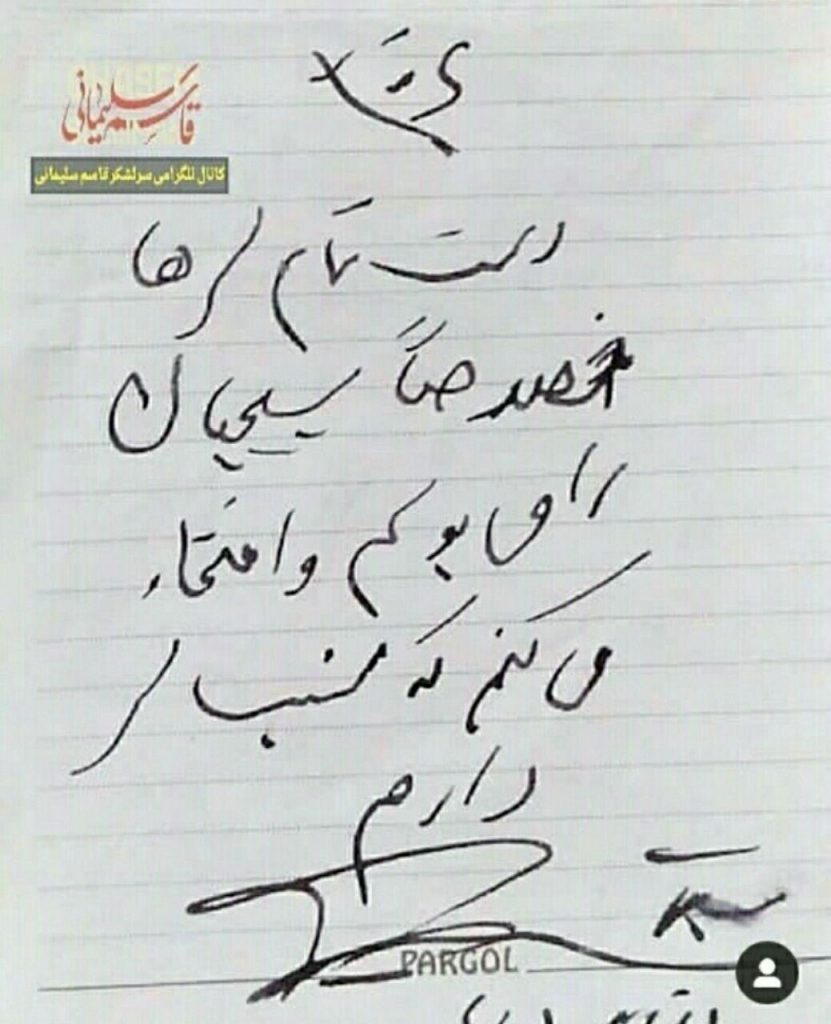 قاسم سلیمانی
کانال تلگرامی سرلشکر قاسم سلیمانی
دست تمام لرها
خصوصاً بسیجیان
را می بوسم و افتخار
می کنم که نسب لر
دارم
PARGOL